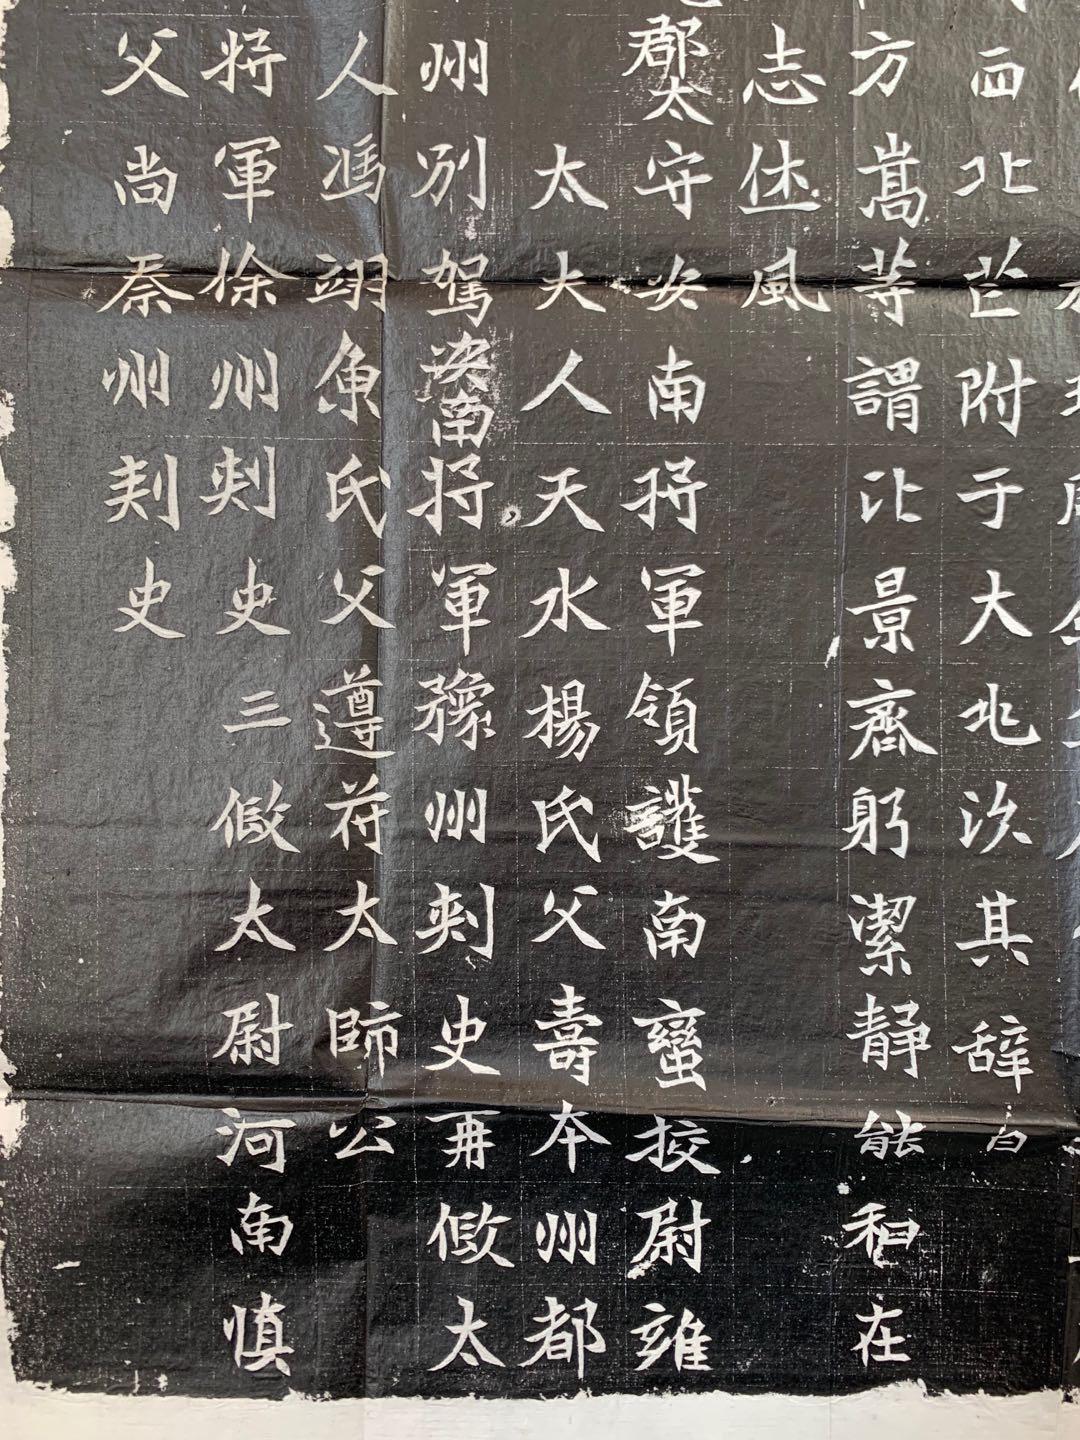 西北芒附于大兆次其辞曰
方嵩等謂比景齊躬潔静能和在
志烋風
郡太守安南将軍領護南蠻挍尉雍
太大人天水楊氏父壽本州都
州別駕安南将軍豫州刺史再假太
人馮翊魚氏父遵苻太師公
将軍徐州刺史三假太尉河南慎
父尚秦州刺史